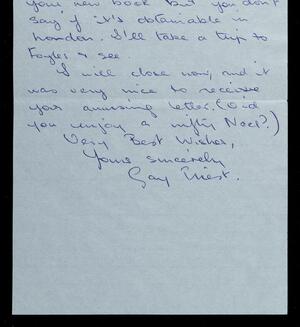 your new book but you don't
say if it's obtainable in
London. I'll take a trip to
Foyles & see.
I will close now, and it
was very nice to receive
your amusing letter. (Did
you enjoy a nifty Noel?)
Very Best Wishes,
Yours sincerely
Gay Priest.